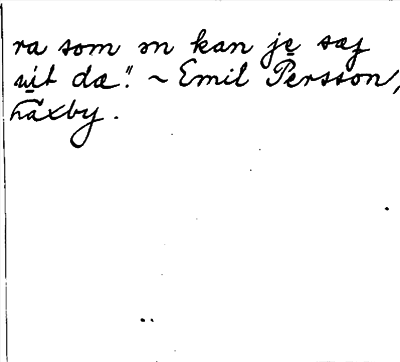 ra som ən kan je sæj
ut dæ." ~ Emil Persson,
Täxby.